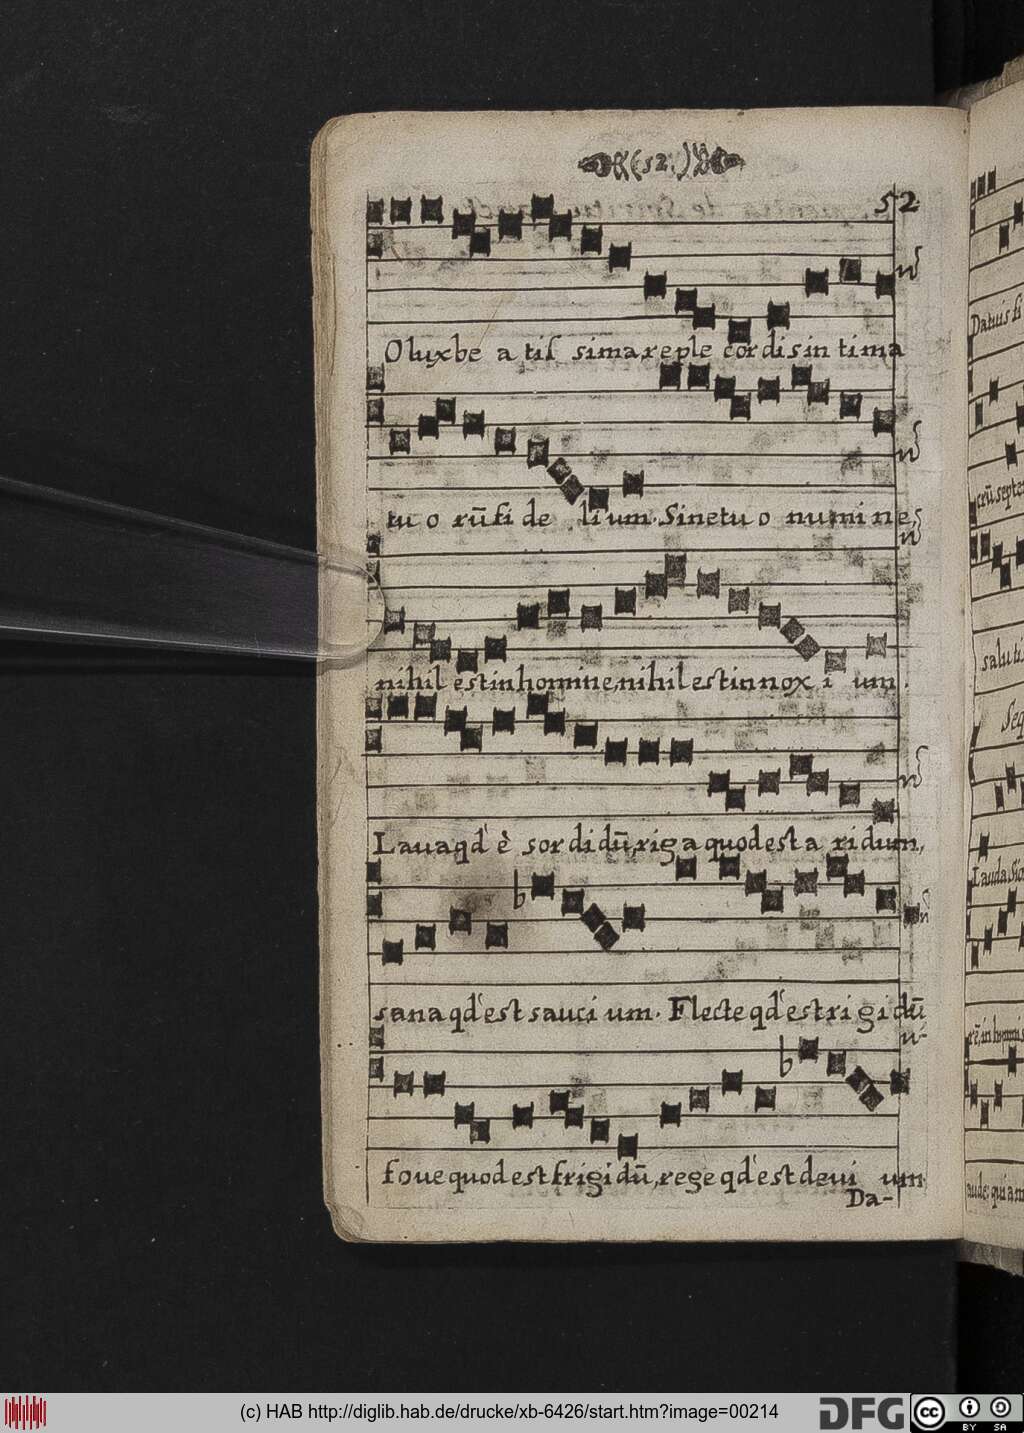 (52.)
52
O lux be a tis sima, reple cordis in tima
tu o rū fi de li um. Sine tu o numi ne,
nihil est in homine, nihil est in nox i um.
Laua qd' è sordidū, riga quod est a ridum,
sana qd' est sauci um. Flecte qd' est ri gi dū
foue quod est frigi dū, rege qd' est devi um.
Da-
Datuis fi
crū septe
salu ti
Seq
Lauda Siō
rē, in hymnis
aude: qui a m
(c) HAB http://diglib.hab.de/drucke/xb-6426/start.htm?image=00214
DFG
cc
BY SA